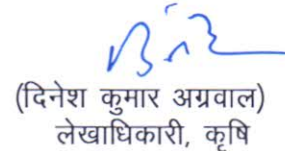 (दिनेश कुमार अग्रवाल)
लेखाधिकारी, कृषि